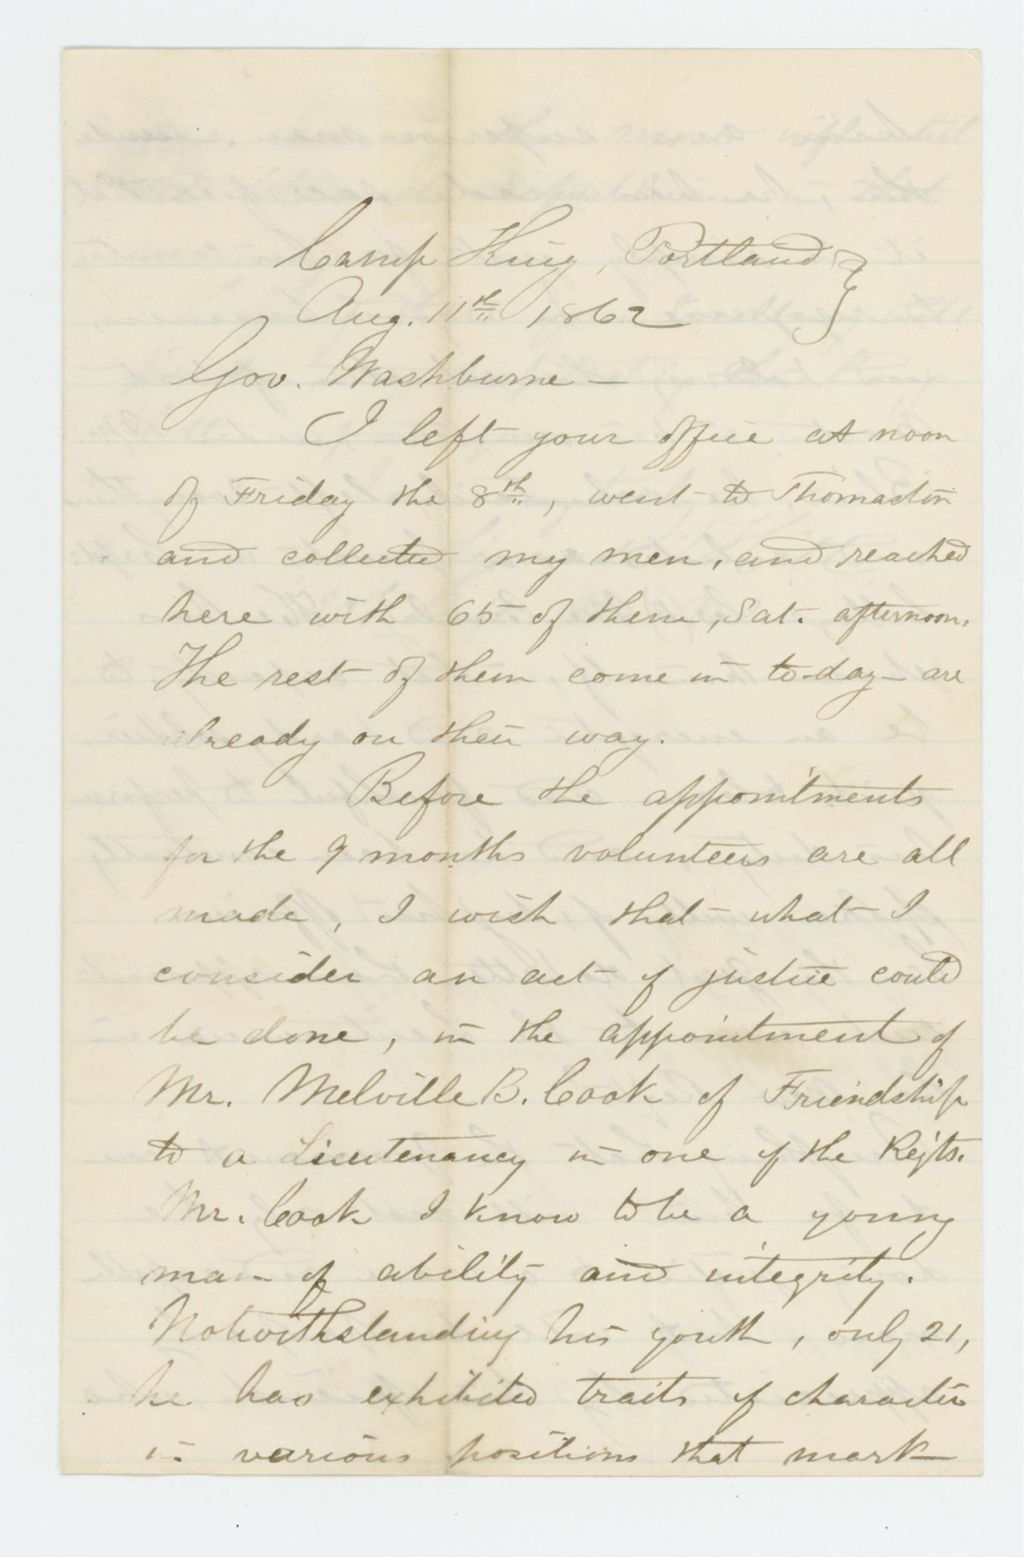 Camp King, Portland }
Aug. 11th 1862 }
Gov. Washburne —
I left your office at noon
of Friday the 8th, went to Thomaston
and collected my men, and reached
here with 65 of them, Sat. afternoon.
The rest of them come in to-day – are
already on their way.
Before the appointments
for the 9 months volunteers are all
made, I wish that what I
consider an act of justice could
be done, in the appointment of
Mr. Melville B. Cook of Friendship
to a Lieutenancy in one of the Regts.
Mr. Cook I know to be a young
man of ability and integrity.
Notwithstanding his youth, only 21,
he has exhibited traits of character
in various positions that mark